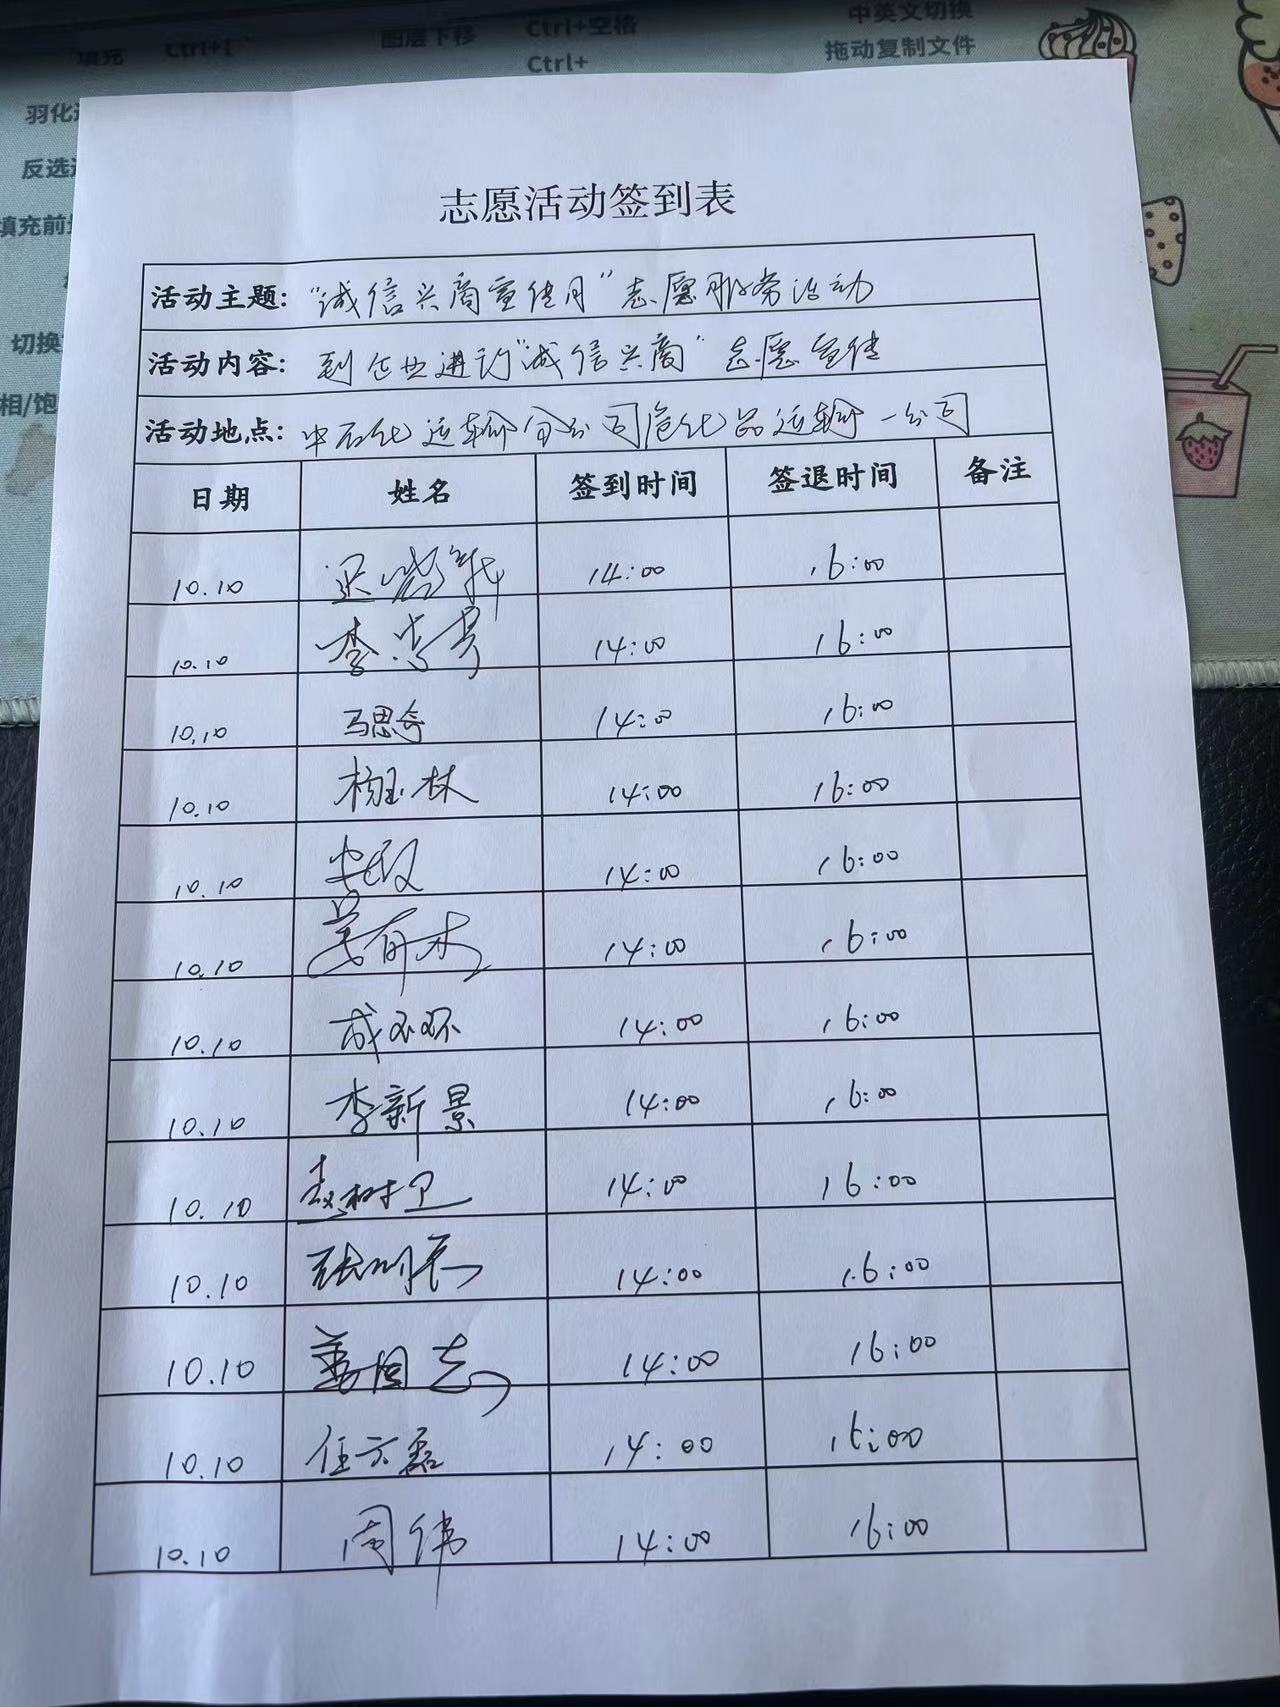 填充 Ctrl+ 图层下移 Ctrl+空格 中英文切换
Ctrl+ 拖动复制文件
羽化
反选
填充前
切换
相/饱
志愿活动签到表
活动主题: "诚信兴商宣传月"志愿服务活动
活动内容: 到企业进行"诚信兴商"志愿宣传
活动地点: 中石化运输分公司危化品运输一公司
日期 姓名 签到时间 签退时间 备注
10.10 14:00 16:00
10.10 李 14:00 16:00
10.10 马思奇 14:00 16:00
10.10 杨玉林 14:00 16:00
10.10 14:00 16:00
10.10 14:00 16:00
10.10 成 环 14:00 16:00
10.10 李新景 14:00 16:00
10.10 赵树卫 14:00 16:00
10.10 张明 14:00 16:00
10.10 国志 14:00 16:00
10.10 任 磊 14:00 16:00
10.10 周伟 14:00 16:00